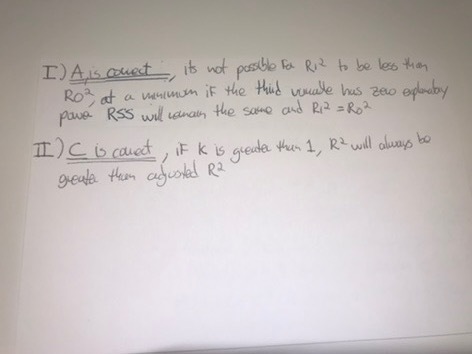 I) A, is correct, its not possible for R1² to be less than
R0², at a minimum if the third variable has zero explanatory
power RSS will remain the same and R1² = R0²
II) C is correct, if K is greater than 1, R² will always be
greater than adjusted R²